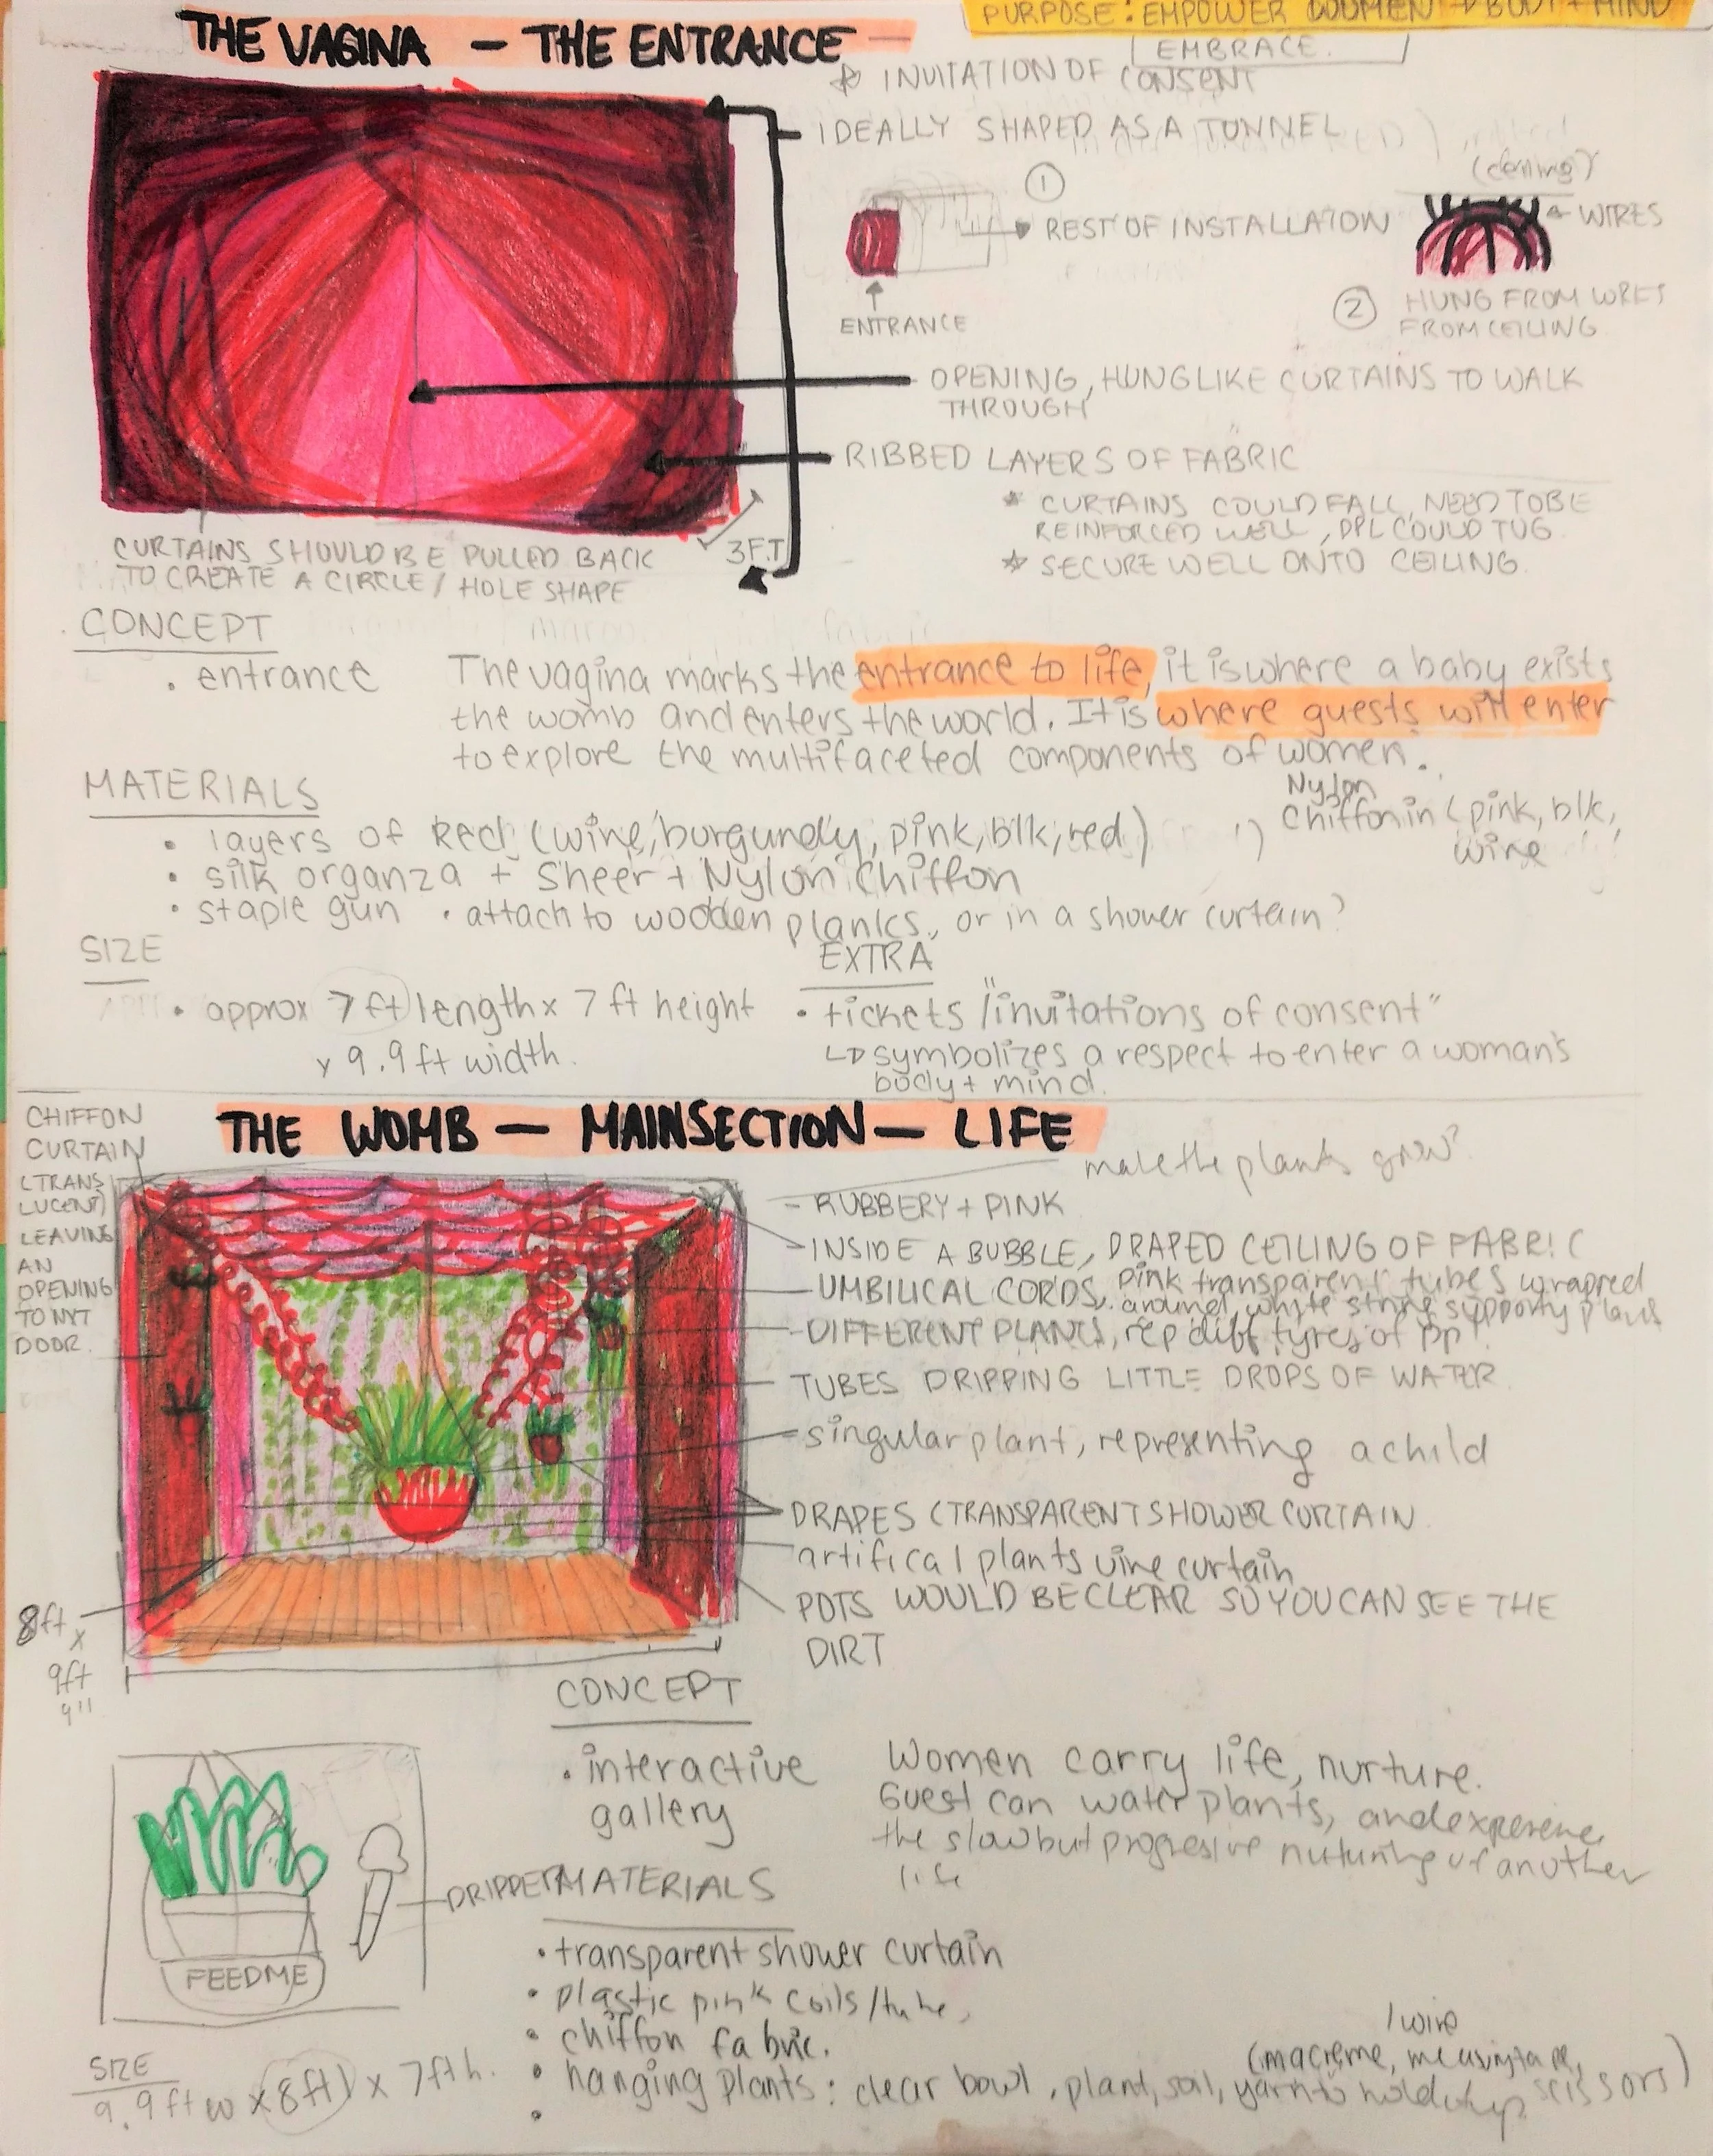 THE VAGINA — THE ENTRANCE
PURPOSE: EMPOWER WOMEN → BODY + MIND
EMBRACE.
☆ INVITATION OF CONSENT
IDEALLY SHAPED AS A TUNNEL
①
(ceiling)
→ REST OF INSTALLATION
WIRES
ENTRANCE
② HUNG FROM WIRES
FROM CEILING
OPENING, HUNG LIKE CURTAINS TO WALK
THROUGH
RIBBED LAYERS OF FABRIC
* CURTAINS COULD FALL, NEED TO BE
REINFORCED WELL, PPL COULD TUG
☆ SECURE WELL ONTO CEILING.
3FT
CURTAINS SHOULD BE PULLED BACK
TO CREATE A CIRCLE / HOLE SHAPE
CONCEPT
• entrance
The vagina marks the entrance to life, it is where a baby exists
the womb and enters the world. It is where guests will enter
to explore the multifaceted components of women.
MATERIALS
• layers of Red (wine, burgundy, pink, blk, red)
1) Nylon
Chiffon in (pink, blk,
wine
• silk organza + Sheer + Nylon Chiffon
• staple gun • attach to wooden planks, or in a shower curtain?
SIZE
• approx 7 ft length x 7 ft height
x 9.9 ft width.
EXTRA
• tickets / "invitations of consent"
↳ symbolizes a respect to enter a woman's
body + mind.
THE WOMB — MAINSECTION — LIFE
CHIFFON
CURTAIN
(TRANS
LUCENT)
LEAVING
AN
OPENING
TO NXT
DOOR.
make the plants grow?
- RUBBERY + PINK
INSIDE A BUBBLE, DRAPED CEILING OF FABRIC
UMBILICAL CORDS, pink transparent tubes wrapped
around white string supporting plants
DIFFERENT PLANTS, rep diff types of pp!
TUBES DRIPPING LITTLE DROPS OF WATER
singular plant, representing a child
DRAPES (TRANSPARENT SHOWER CURTAIN
artifical plants vine curtain
POTS WOULD BE CLEAR SO YOU CAN SEE THE
DIRT
8ft
x
9ft
9"
CONCEPT
• interactive
gallery
Women carry life, nurture.
Guest can water plants, and experience
the slow but progressive nuturing of another
life
DRIPPER
FEED ME
MATERIALS
• transparent shower curtain
• plastic pink coils / tube,
• chiffon fabric.
• hanging plants: clear bowl, plant, soil, yarn to hold it up
/ wire
(macreme, measuring tape,
scissors)
•
SIZE
9.9 ft w x 8ft l x 7ft h.